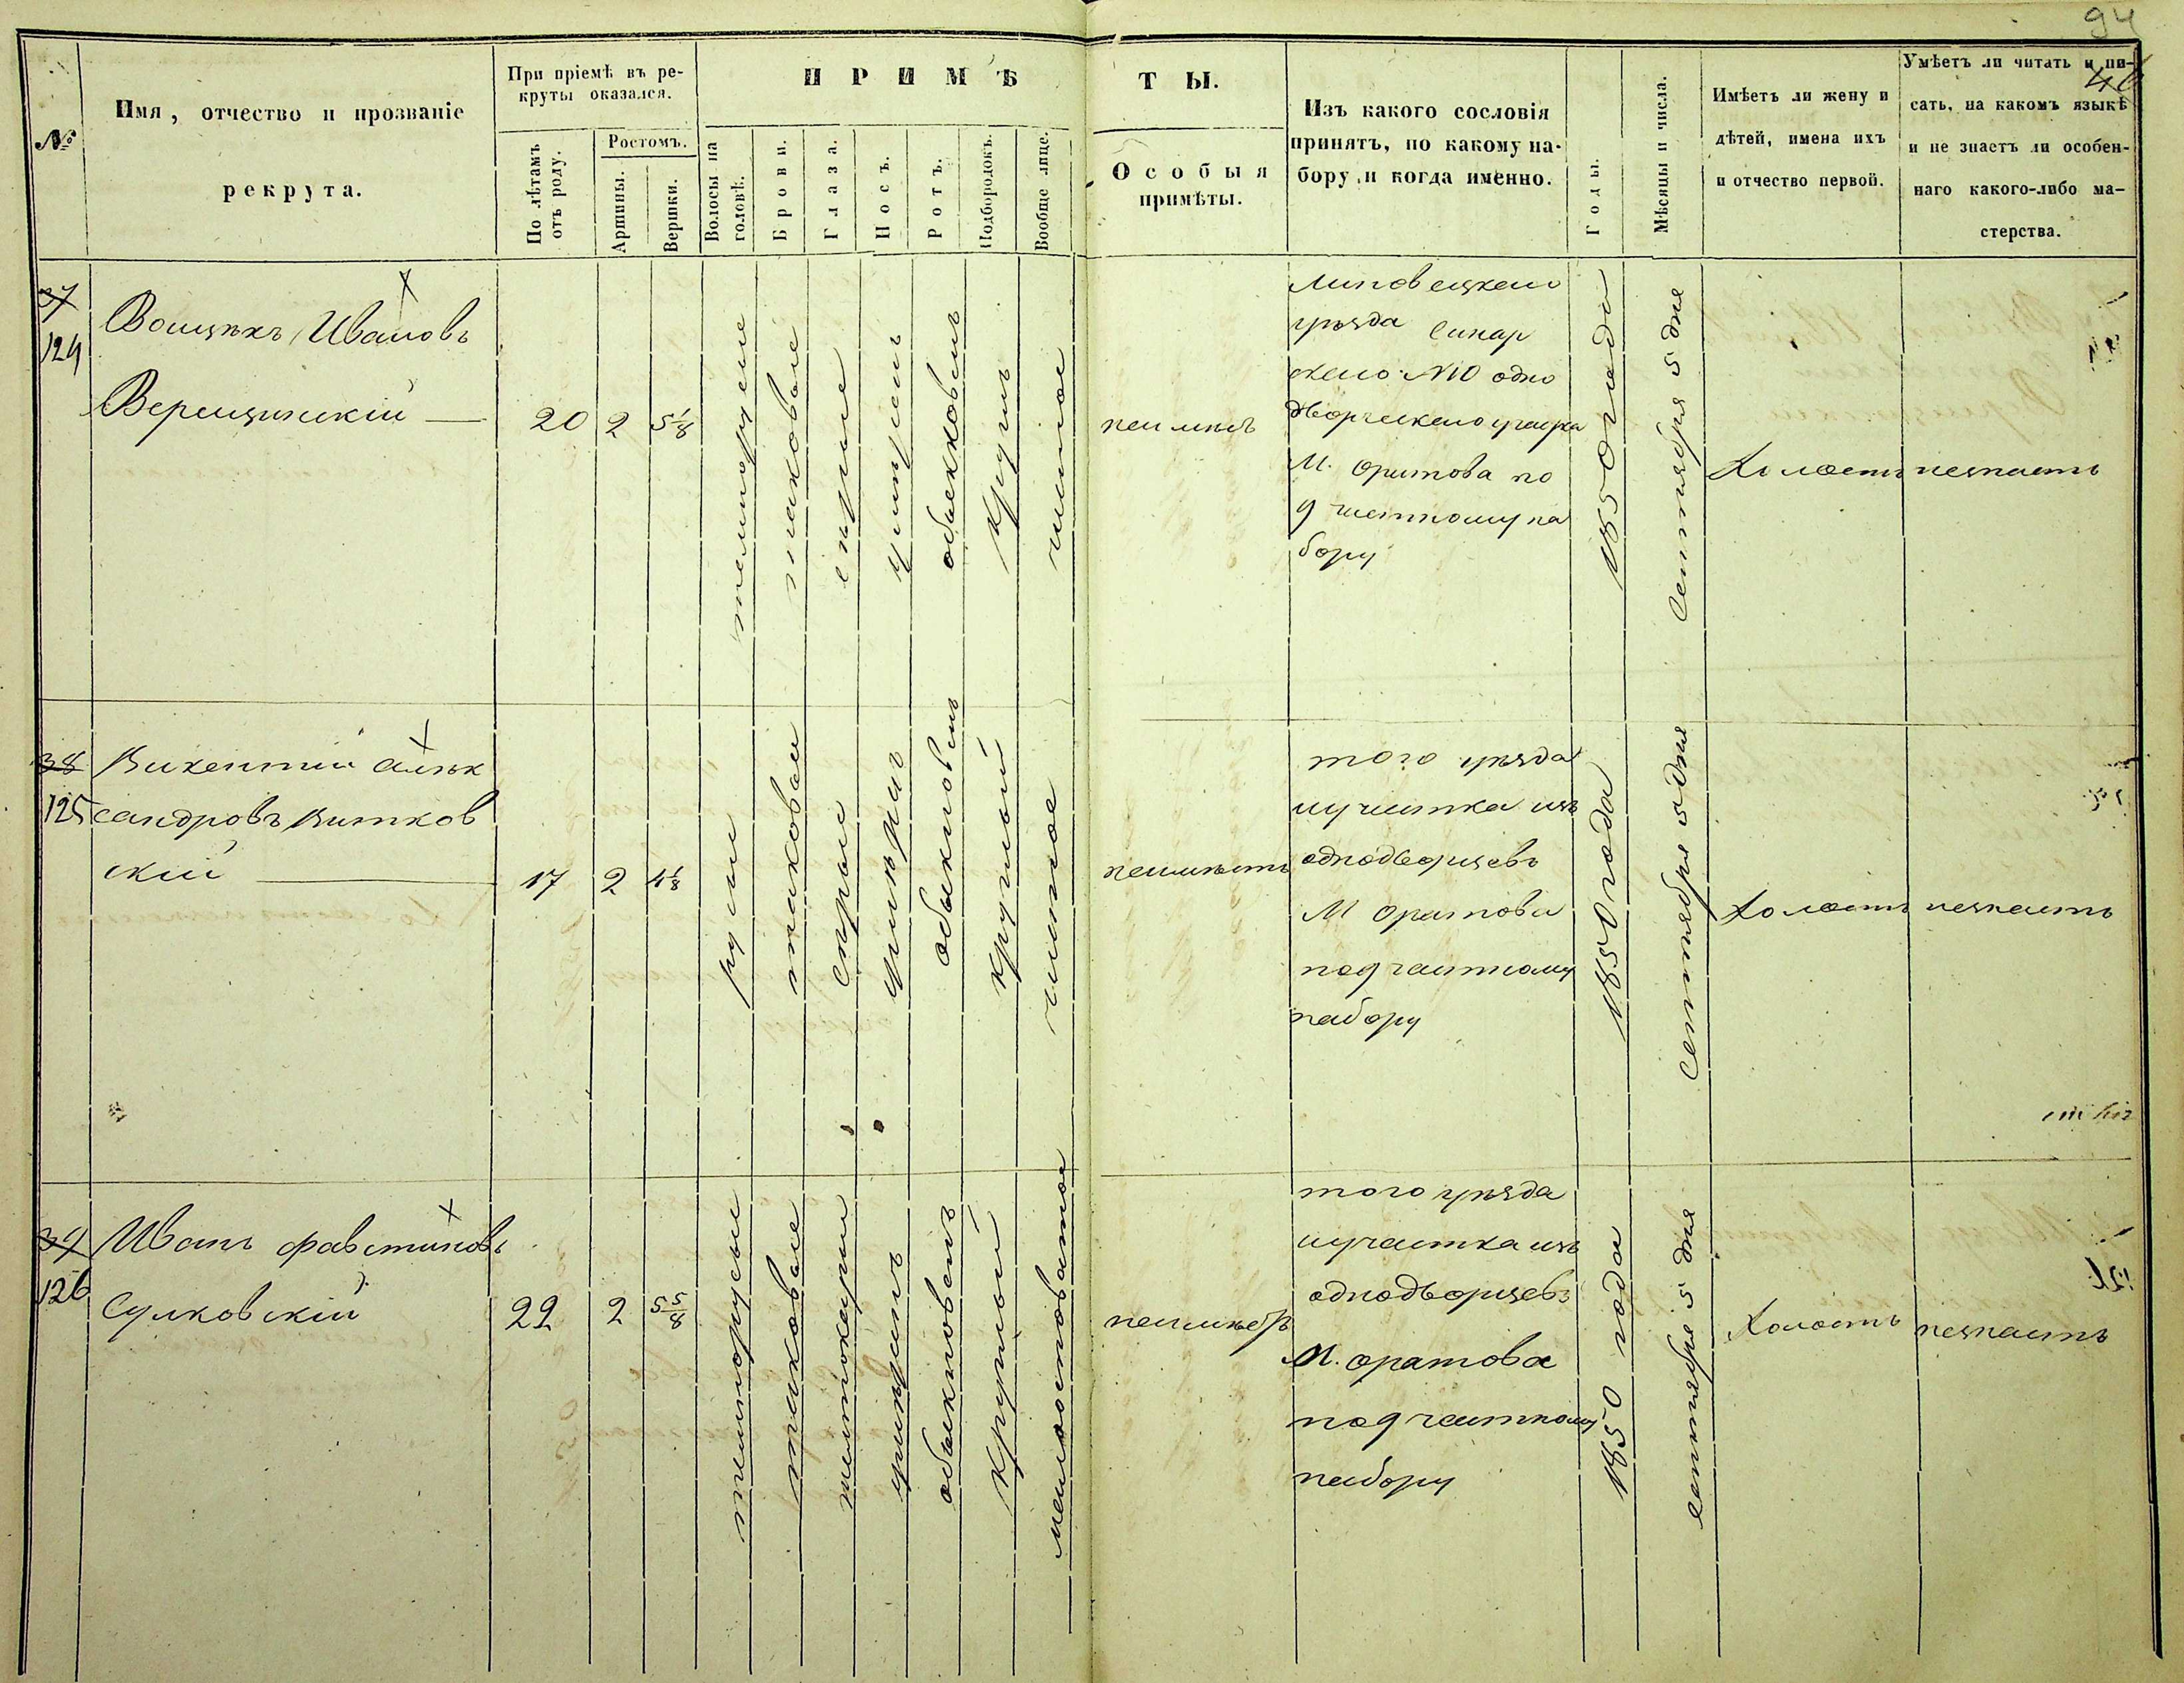 94
46
№
Имя, отчество и прозваніе
рекрута.
При пріемѣ въ ре-
круты оказался.
По лѣтамъ
отъ роду.
Ростомъ.
Аршины.
Вершки.
ПРИМѢ
ТЫ.
Волосы на
головѣ.
Брови.
Глаза.
Носъ.
Ротъ.
Подбородокъ.
Вообще лице.
Особыя
примѣты.
Изъ какого сословія
принятъ, по какому на-
бору и когда именно.
Годы.
Мѣсяцы и числа.
Имѣетъ ли жену и
дѣтей, имена ихъ
и отчество первой.
Умѣетъ ли читать и пи-
сать, на какомъ языкѣ
и не знаетъ ли особен-
наго какого-либо ма-
стерства.
37
124
Войцѣхъ Ивановъ
Верещинскій
20
2
5 1/8
темнорусые
таковые
сѣрые
умѣрен
обыкновен
кругл
чистое
неимѣетъ
Липовецкаго
уѣзда
скаго №10 одно
дворческаго участка
М. Оратова по
9 частному на
бору
1850 года
Сентября 5 дня
Холостъ
незнаетъ
38
125
Викентій Алек
сандровъ Витков
скій
17
2
4 1/8
русые
таковые
сѣрые
умѣрен
обыкновен
круглый
чистое
неимѣетъ
того уѣзда
иучастка изъ
однодворцевъ
М Оратова
по 9 частному
набору
1850 года
Сентября 5 дня
Холостъ
незнаетъ
39
126
Иванъ Фавстиновъ
Сулковскій
22
2
5 5/8
темнорусые
таковые
темнокаріи
умѣрен
обыкновенъ
круглый
неимѣетъ
того уѣзда
иучастка изъ
однодворцевъ
М. Оратова
по 9 частному
набору
1850 года
сентября 5 дня
Холостъ
незнаетъ